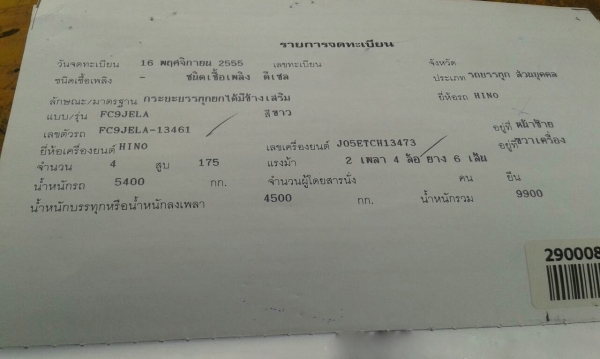 รายการจดทะเบียน
วันจดทะเบียน 16 พฤศจิกายน 2555 เลขทะเบียน จังหวัด
ชนิดเชื้อเพลิง - ชนิดเชื้อเพลิง ดีเซล ประเภท รถบรรทุก ส่วนบุคคล
ลักษณะ/มาตรฐาน กระบะบรรทุกยกได้มีข้างเสริม ยี่ห้อรถ HINO
แบบ/รุ่น FC9JELA สี ขาว
เลขตัวรถ FC9JELA-13461 อยู่ที่ หน้าซ้าย
ยี่ห้อเครื่องยนต์ HINO เลขเครื่องยนต์ J05ETCH13473 อยู่ที่ ขวาเครื่อง
จำนวน 4 สูบ 175 แรงม้า 2 เพลา 4 ล้อ ยาง 6 เส้น
น้ำหนักรถ 5400 กก. จำนวนผู้โดยสารนั่ง คน ยืน
น้ำหนักบรรทุกหรือน้ำหนักลงเพลา 4500 กก. น้ำหนักรวม 9900
290008